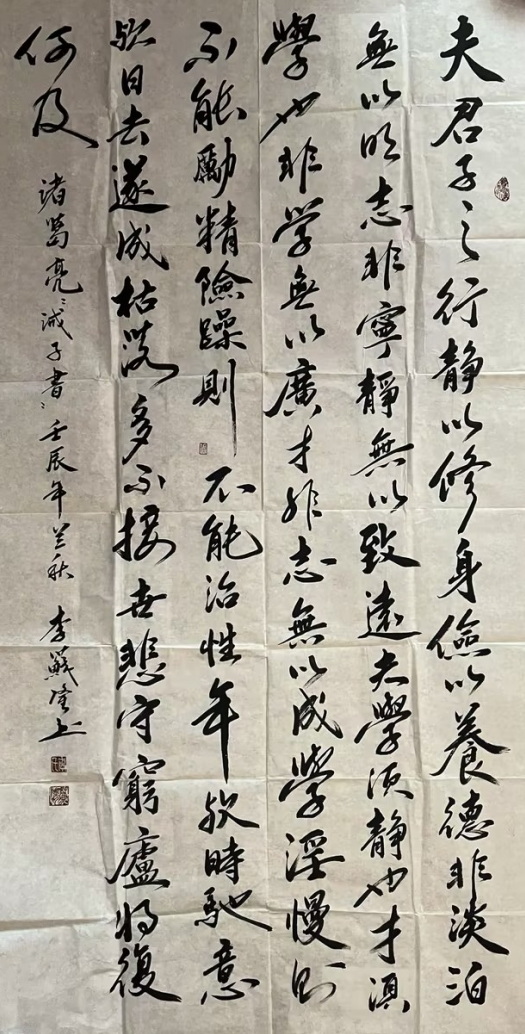 夫君子之行靜以修身儉以養德非淡泊
無以明志非寧靜無以致遠夫學須靜也才須
學也非学無以廣才非志無以成學淫慢則
不能勵精險躁則不能治性年與時馳意
與日去遂成枯落多不接世悲守窮廬將復
何及
諸葛亮誡子書壬辰年兰秋李